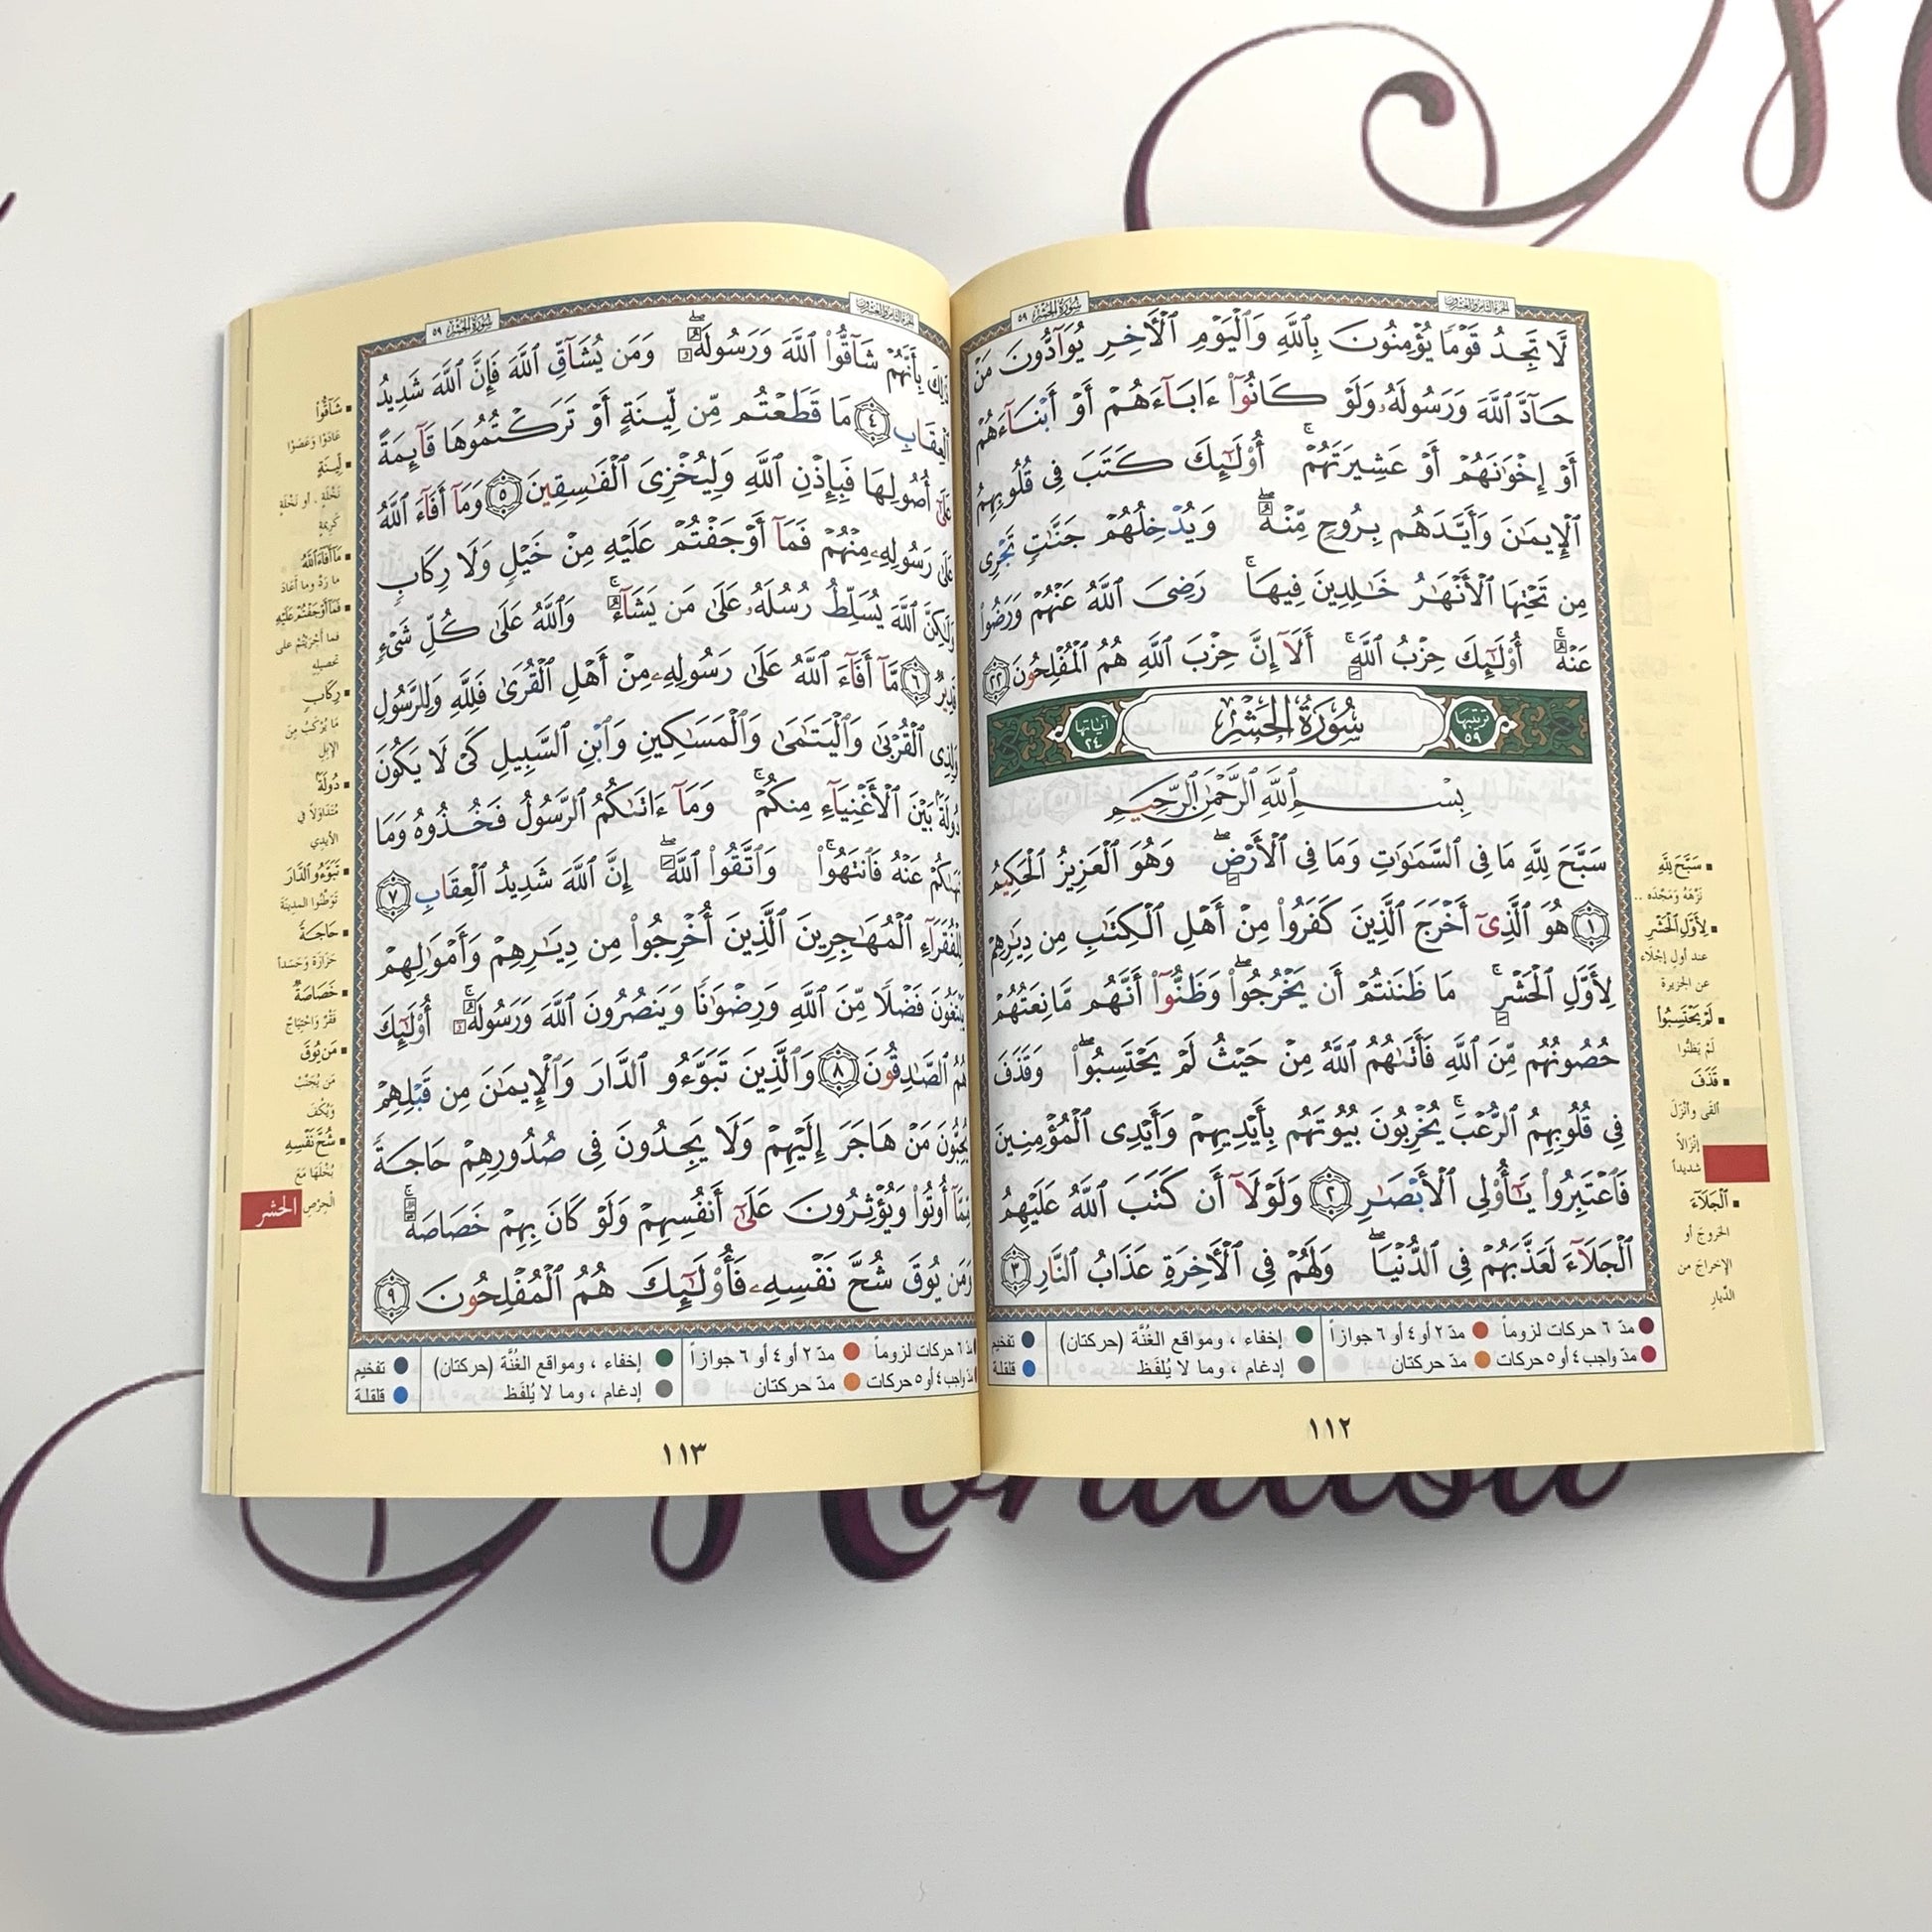 الجزء الثامن والعشرون
سورة الحشر ٥٩
لَّا تَجِدُ قَوْمًا يُؤْمِنُونَ بِٱللَّهِ وَٱلْيَوْمِ ٱلْأَخِرِ يُوَآدُّونَ مَنْ
حَآدَّ ٱللَّهَ وَرَسُولَهُۥ وَلَوْ كَانُوٓا۟ ءَابَآءَهُمْ أَوْ أَبْنَآءَهُمْ
أَوْ إِخْوَٰنَهُمْ أَوْ عَشِيرَتَهُمْ ۚ أُو۟لَٰٓئِكَ كَتَبَ فِى قُلُوبِهِمُ
ٱلْإِيمَٰنَ وَأَيَّدَهُم بِرُوحٍ مِّنْهُ ۖ وَيُدْخِلُهُمْ جَنَّٰتٍ تَجْرِى
مِن تَحْتِهَا ٱلْأَنْهَٰرُ خَٰلِدِينَ فِيهَا ۚ رَضِىَ ٱللَّهُ عَنْهُمْ وَرَضُوا۟
عَنْهُ ۚ أُو۟لَٰٓئِكَ حِزْبُ ٱللَّهِ ۚ أَلَآ إِنَّ حِزْبَ ٱللَّهِ هُمُ ٱلْمُفْلِحُونَ ٢٢
ترتيبها ٥٩ سورة الحشر آياتها ٢٤
بِسْمِ ٱللَّهِ ٱلرَّحْمَٰنِ ٱلرَّحِيمِ
سَبَّحَ لِلَّهِ مَا فِى ٱلسَّمَٰوَٰتِ وَمَا فِى ٱلْأَرْضِ ۖ وَهُوَ ٱلْعَزِيزُ ٱلْحَكِيمُ
١ هُوَ ٱلَّذِىٓ أَخْرَجَ ٱلَّذِينَ كَفَرُوا۟ مِنْ أَهْلِ ٱلْكِتَٰبِ مِن دِيَٰرِهِمْ
لِأَوَّلِ ٱلْحَشْرِ ۚ مَا ظَنَنتُمْ أَن يَخْرُجُوا۟ ۖ وَظَنُّوٓا۟ أَنَّهُم مَّانِعَتُهُمْ
حُصُونُهُم مِّنَ ٱللَّهِ فَأَتَىٰهُمُ ٱللَّهُ مِنْ حَيْثُ لَمْ يَحْتَسِبُوا۟ ۖ وَقَذَفَ
فِى قُلُوبِهِمُ ٱلرُّعْبَ ۚ يُخْرِبُونَ بُيُوتَهُم بِأَيْدِيهِمْ وَأَيْدِى ٱلْمُؤْمِنِينَ
فَٱعْتَبِرُوا۟ يَٰٓأُو۟لِى ٱلْأَبْصَٰرِ ٢ وَلَوْلَآ أَن كَتَبَ ٱللَّهُ عَلَيْهِمُ
ٱلْجَلَآءَ لَعَذَّبَهُمْ فِى ٱلدُّنْيَا ۖ وَلَهُمْ فِى ٱلْأَخِرَةِ عَذَابُ ٱلنَّارِ ٣
سَبَّحَ لِلَّهِ
نَزَّهَهُ وَمَجَّدَه ..
لِأَوَّلِ ٱلْحَشْرِ
عند أول إجْلَاء
عن الجزيرة
لَمْ يَحْتَسِبُوا۟
لَمْ يَظُنُّوا
قَذَفَ
ألقى وأنْزَلَ
إنْزَالاً
شديداً
ٱلْجَلَآءَ
الخروجَ أو
الإخراجَ من
الدِّيارِ
مدّ ٦ حركات لزوماً مدّ ٢ أو ٤ أو ٦ جوازاً إخفاء ، ومواقع الغُنَّة (حركتان) تفخيم
مدّ واجب ٤ أو ٥ حركات مدّ حركتان إدغام ، وما لا يُلفَظ قلقلة
١١٢
الجزء الثامن والعشرون
سورة الحشر ٥٩
ذَٰلِكَ بِأَنَّهُمْ شَآقُّوا۟ ٱللَّهَ وَرَسُولَهُۥ ۖ وَمَن يُشَآقِّ ٱللَّهَ فَإِنَّ ٱللَّهَ شَدِيدُ
ٱلْعِقَابِ ٤ مَا قَطَعْتُم مِّن لِّينَةٍ أَوْ تَرَكْتُمُوهَا قَآئِمَةً
عَلَىٰٓ أُصُولِهَا فَبِإِذْنِ ٱللَّهِ وَلِيُخْزِىَ ٱلْفَٰسِقِينَ ٥ وَمَآ أَفَآءَ ٱللَّهُ
عَلَىٰ رَسُولِهِۦ مِنْهُمْ فَمَآ أَوْجَفْتُمْ عَلَيْهِ مِنْ خَيْلٍ وَلَا رِكَابٍ
وَلَٰكِنَّ ٱللَّهَ يُسَلِّطُ رُسُلَهُۥ عَلَىٰ مَن يَشَآءُ ۚ وَٱللَّهُ عَلَىٰ كُلِّ شَىْءٍ
قَدِيرٌ ٦ مَّآ أَفَآءَ ٱللَّهُ عَلَىٰ رَسُولِهِۦ مِنْ أَهْلِ ٱلْقُرَىٰ فَلِلَّهِ وَلِلرَّسُولِ
وَلِذِى ٱلْقُرْبَىٰ وَٱلْيَتَٰمَىٰ وَٱلْمَسَٰكِينِ وَٱبْنِ ٱلسَّبِيلِ كَىْ لَا يَكُونَ
دُولَةًۢ بَيْنَ ٱلْأَغْنِيَآءِ مِنكُمْ ۚ وَمَآ ءَاتَىٰكُمُ ٱلرَّسُولُ فَخُذُوهُ وَمَا
نَهَىٰكُمْ عَنْهُ فَٱنتَهُوا۟ ۚ وَٱتَّقُوا۟ ٱللَّهَ ۖ إِنَّ ٱللَّهَ شَدِيدُ ٱلْعِقَابِ ٧
لِلْفُقَرَآءِ ٱلْمُهَٰجِرِينَ ٱلَّذِينَ أُخْرِجُوا۟ مِن دِيَٰرِهِمْ وَأَمْوَٰلِهِمْ
يَبْتَغُونَ فَضْلًا مِّنَ ٱللَّهِ وَرِضْوَٰنًا وَيَنصُرُونَ ٱللَّهَ وَرَسُولَهُۥٓ ۚ أُو۟لَٰٓئِكَ
هُمُ ٱلصَّٰدِقُونَ ٨ وَٱلَّذِينَ تَبَوَّءُو ٱلدَّارَ وَٱلْإِيمَٰنَ مِن قَبْلِهِمْ
يُحِبُّونَ مَنْ هَاجَرَ إِلَيْهِمْ وَلَا يَجِدُونَ فِى صُدُورِهِمْ حَاجَةً
مِّمَّآ أُوتُوا۟ وَيُؤْثِرُونَ عَلَىٰٓ أَنفُسِهِمْ وَلَوْ كَانَ بِهِمْ خَصَاصَةٌ ۚ
وَمَن يُوقَ شُحَّ نَفْسِهِۦ فَأُو۟لَٰٓئِكَ هُمُ ٱلْمُفْلِحُونَ ٩
شَآقُّوا۟
عَادَوْا وَعَصَوْا
لِّينَةٍ
نَخْلَةٍ . أو نَخْلَةٍ
كَرِيمَةٍ
مَآ أَفَآءَ ٱللَّهُ
ما رَدَّ وما أعَادَ
فَمَآ أَوْجَفْتُمْ عَلَيْهِ
فما أجْرَيْتُمْ على
تحصيلِهِ
رِكَابٍ
مَا يُرْكَبُ مِنَ
الإبِلِ
دُولَةً
مُتَدَاوَلاً في
الأيدي
تَبَوَّءُو ٱلدَّارَ
تَوَطَّنُوا المدينَةَ
حَاجَةً
حَزَازَةً وَحَسَداً
خَصَاصَةٌ
فَقْرٌ وَاحْتِيَاجٌ
مَن يُوقَ
مَن يُجَنَّبْ
وَيُكْفَ
شُحَّ نَفْسِهِ
بُخْلَهَا مَعَ
الحِرْصِ
الحشر
مدّ ٦ حركات لزوماً مدّ ٢ أو ٤ أو ٦ جوازاً إخفاء ، ومواقع الغُنَّة (حركتان) تفخيم
مدّ واجب ٤ أو ٥ حركات مدّ حركتان إدغام ، وما لا يُلفَظ قلقلة
١١٣